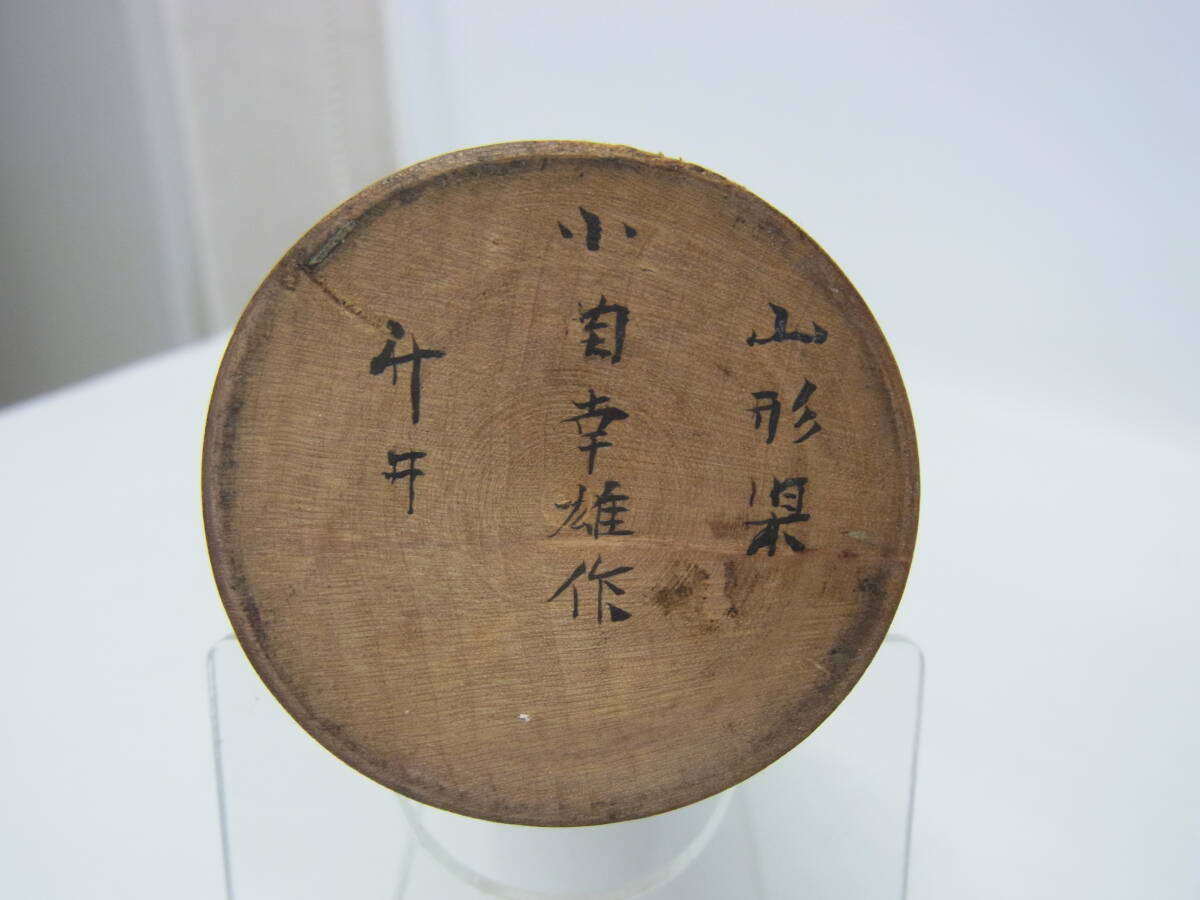 山形県
小関幸雄作